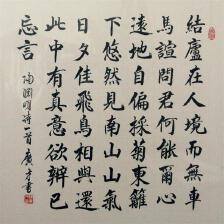 結廬在人境而無車
馬諠問君何能爾心
遠地自偏採菊東籬
下悠然見南山山氣
日夕佳飛鳥相與還
此中有真意欲辨已
忘言 陶淵明詩一首 廣才書